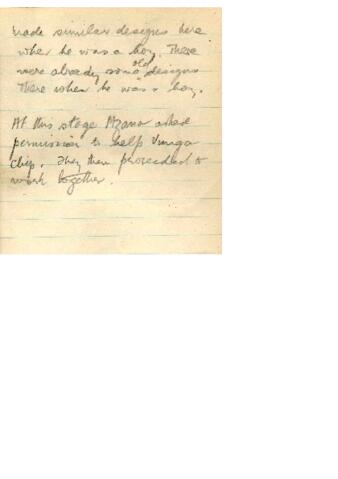 made similar designs here
when he was a boy. There
were already some old designs
there when he was a boy.
At this stage Azano asked
permission to help
chip. They then proceeded to
work together.